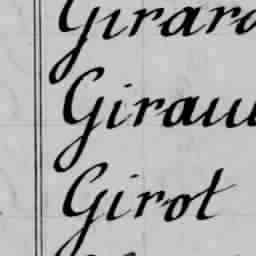 Girard
Girau
Girot